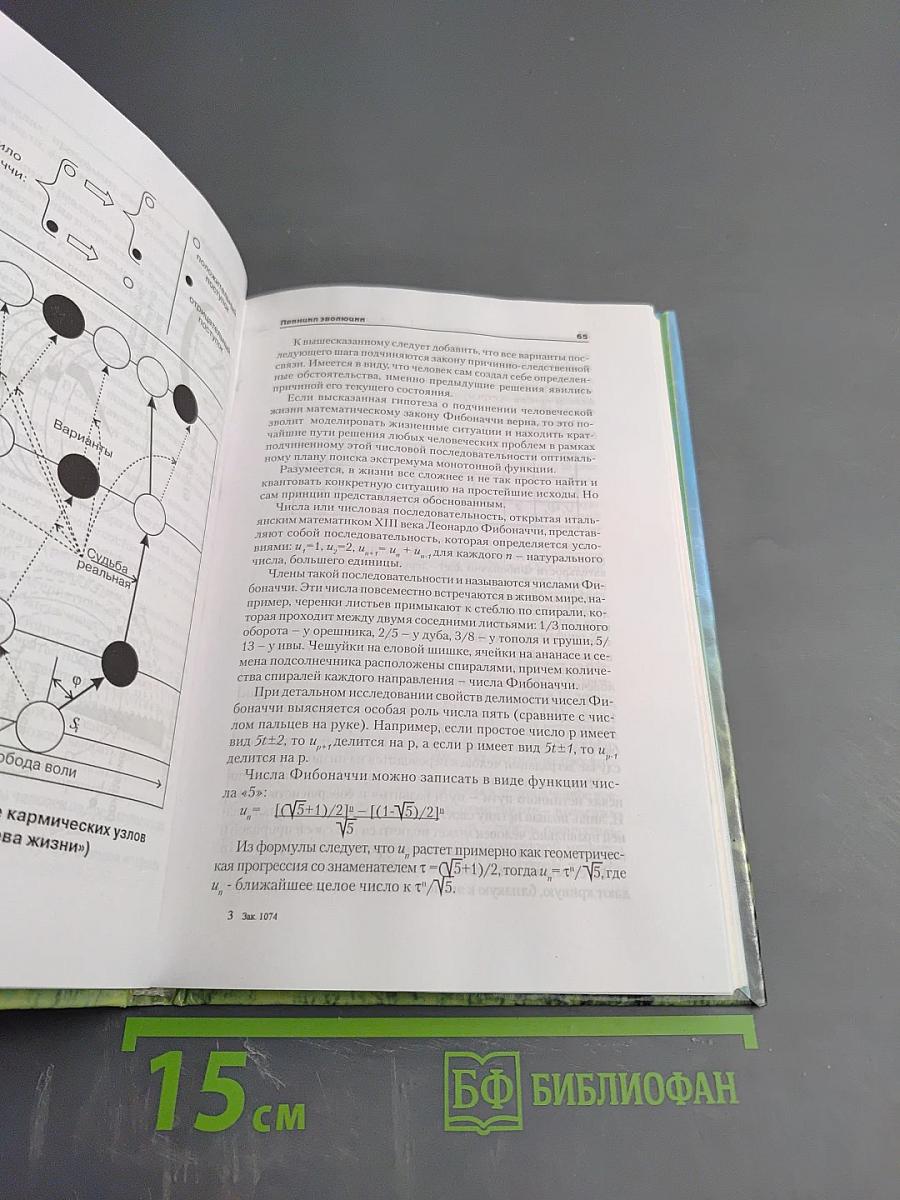 ило
ччи:
положительный
поступок
отрицательный
поступок
Варианты
Судьба
реальная
φ
обода воли
е кармических узлов
ва жизни»)
Принцип эволюции
65
К вышесказанному следует добавить, что все варианты пос-
ледующего шага подчиняются закону причинно-следственной
связи. Имеется в виду, что человек сам создал себе определен-
ные обстоятельства, именно предыдущие решения явились
причиной его текущего состояния.
Если высказанная гипотеза о подчинении человеческой
жизни математическому закону Фибоначчи верна, то это по-
зволит моделировать жизненные ситуации и находить крат-
чайшие пути решения любых человеческих проблем в рамках
подчиненному этой числовой последовательности оптималь-
ному плану поиска экстремума монотонной функции.
Разумеется, в жизни все сложнее и не так просто найти и
квантовать конкретную ситуацию на простейшие исходы. Но
сам принцип представляется обоснованным.
Числа или числовая последовательность, открытая италь-
янским математиком XIII века Леонардо Фибоначчи, представ-
ляют собой последовательность, которая определяется усло-
виями: u₁=1, u₂=2, uₙ₊₁= uₙ + uₙ₋₁ для каждого n – натурального
числа, большего единицы.
Члены такой последовательности и называются числами Фи-
боначчи. Эти числа повсеместно встречаются в живом мире, на-
пример, черенки листьев примыкают к стеблю по спирали, ко-
торая проходит между двумя соседними листьями: 1/3 полного
оборота – у орешника, 2/5 – у дуба, 3/8 – у тополя и груши, 5/
13 – у ивы. Чешуйки на еловой шишке, ячейки на ананасе и се-
мена подсолнечника расположены спиралями, причем количе-
ства спиралей каждого направления – числа Фибоначчи.
При детальном исследовании свойств делимости чисел Фи-
боначчи выясняется особая роль числа пять (сравните с чис-
лом пальцев на руке). Например, если простое число p имеет
вид 5t±2, то uₚ₊₁ делится на p, а если p имеет вид 5t±1, то uₚ₋₁
делится на p.
Числа Фибоначчи можно записать в виде функции чис-
ла «5»:
uₙ= [(√5+1)/2]ⁿ – [(1-√5)/2]ⁿ
√5
Из формулы следует, что uₙ растет примерно как геометричес-
кая прогрессия со знаменателем τ =(√5+1)/2, тогда uₙ= τⁿ/√5, где
uₙ - ближайшее целое число к τⁿ/√5.
3 Зак. 1074
15 см
БФ БИБЛИОФАН